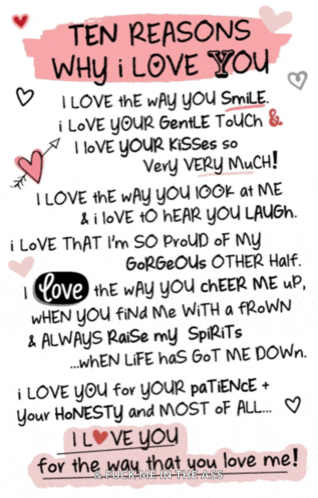 TEN REASONS
WHY i LOVE YOU
I LOVE thE wAy YOU SmiLE.
i LoVE yOUR GentLE ToUch &
I loVE YOUR KiSSes so
Very VERy MuCH!
I LOVE thE WAY YOU lOOK at ME
& i loVE tO hEAR yOU LAUGh.
i LoVE ThAT I'm SO ProUD oF My
GoRGeOUs OTHER Half.
I love thE wAy YOU chEER ME uP,
wHEN YOU fiNd Me WiTH a fRoWN
& ALWAyS RaiSe my SpiRiTs
...whEN LiFE haS GoT ME DOWn.
i LOVE yOU for YOUR paTiENcE +
Your HoNESTy and MOST oF ALL...
I L♥VE YOU
for the way that you love me!
& FUCK ME IN THE ASS